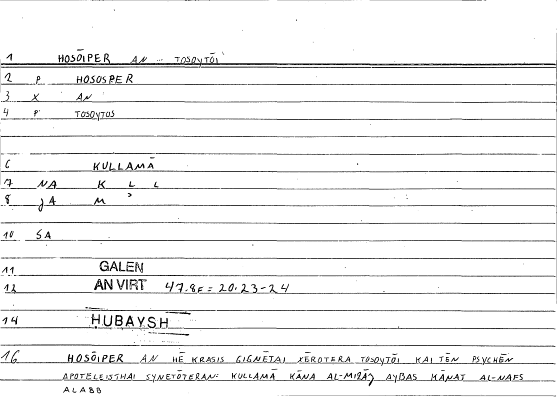 1 HOSŌIPER AN ... TOSOYTŌI
2 P HOSOSPER
3 X AN
4 P TOSOYTOS
6 KULLAMĀ
7 NA K L L
8 jA M ʾ
10 SA
11 GALEN
12 AN VIRT 47.8F = 20.23-24
14 HUBAYSH
16 HOSŌIPER AN HĒ KRASIS GIGNĒTAI XĒROTERA TOSOYTŌI KAI TĒN PSYCHĒN
APOTELEISTHAI SYNETŌTERAN: KULLAMĀ KĀNA AL-MIZĀJ AYBAS KĀNAT AL-NAFS
ALABB